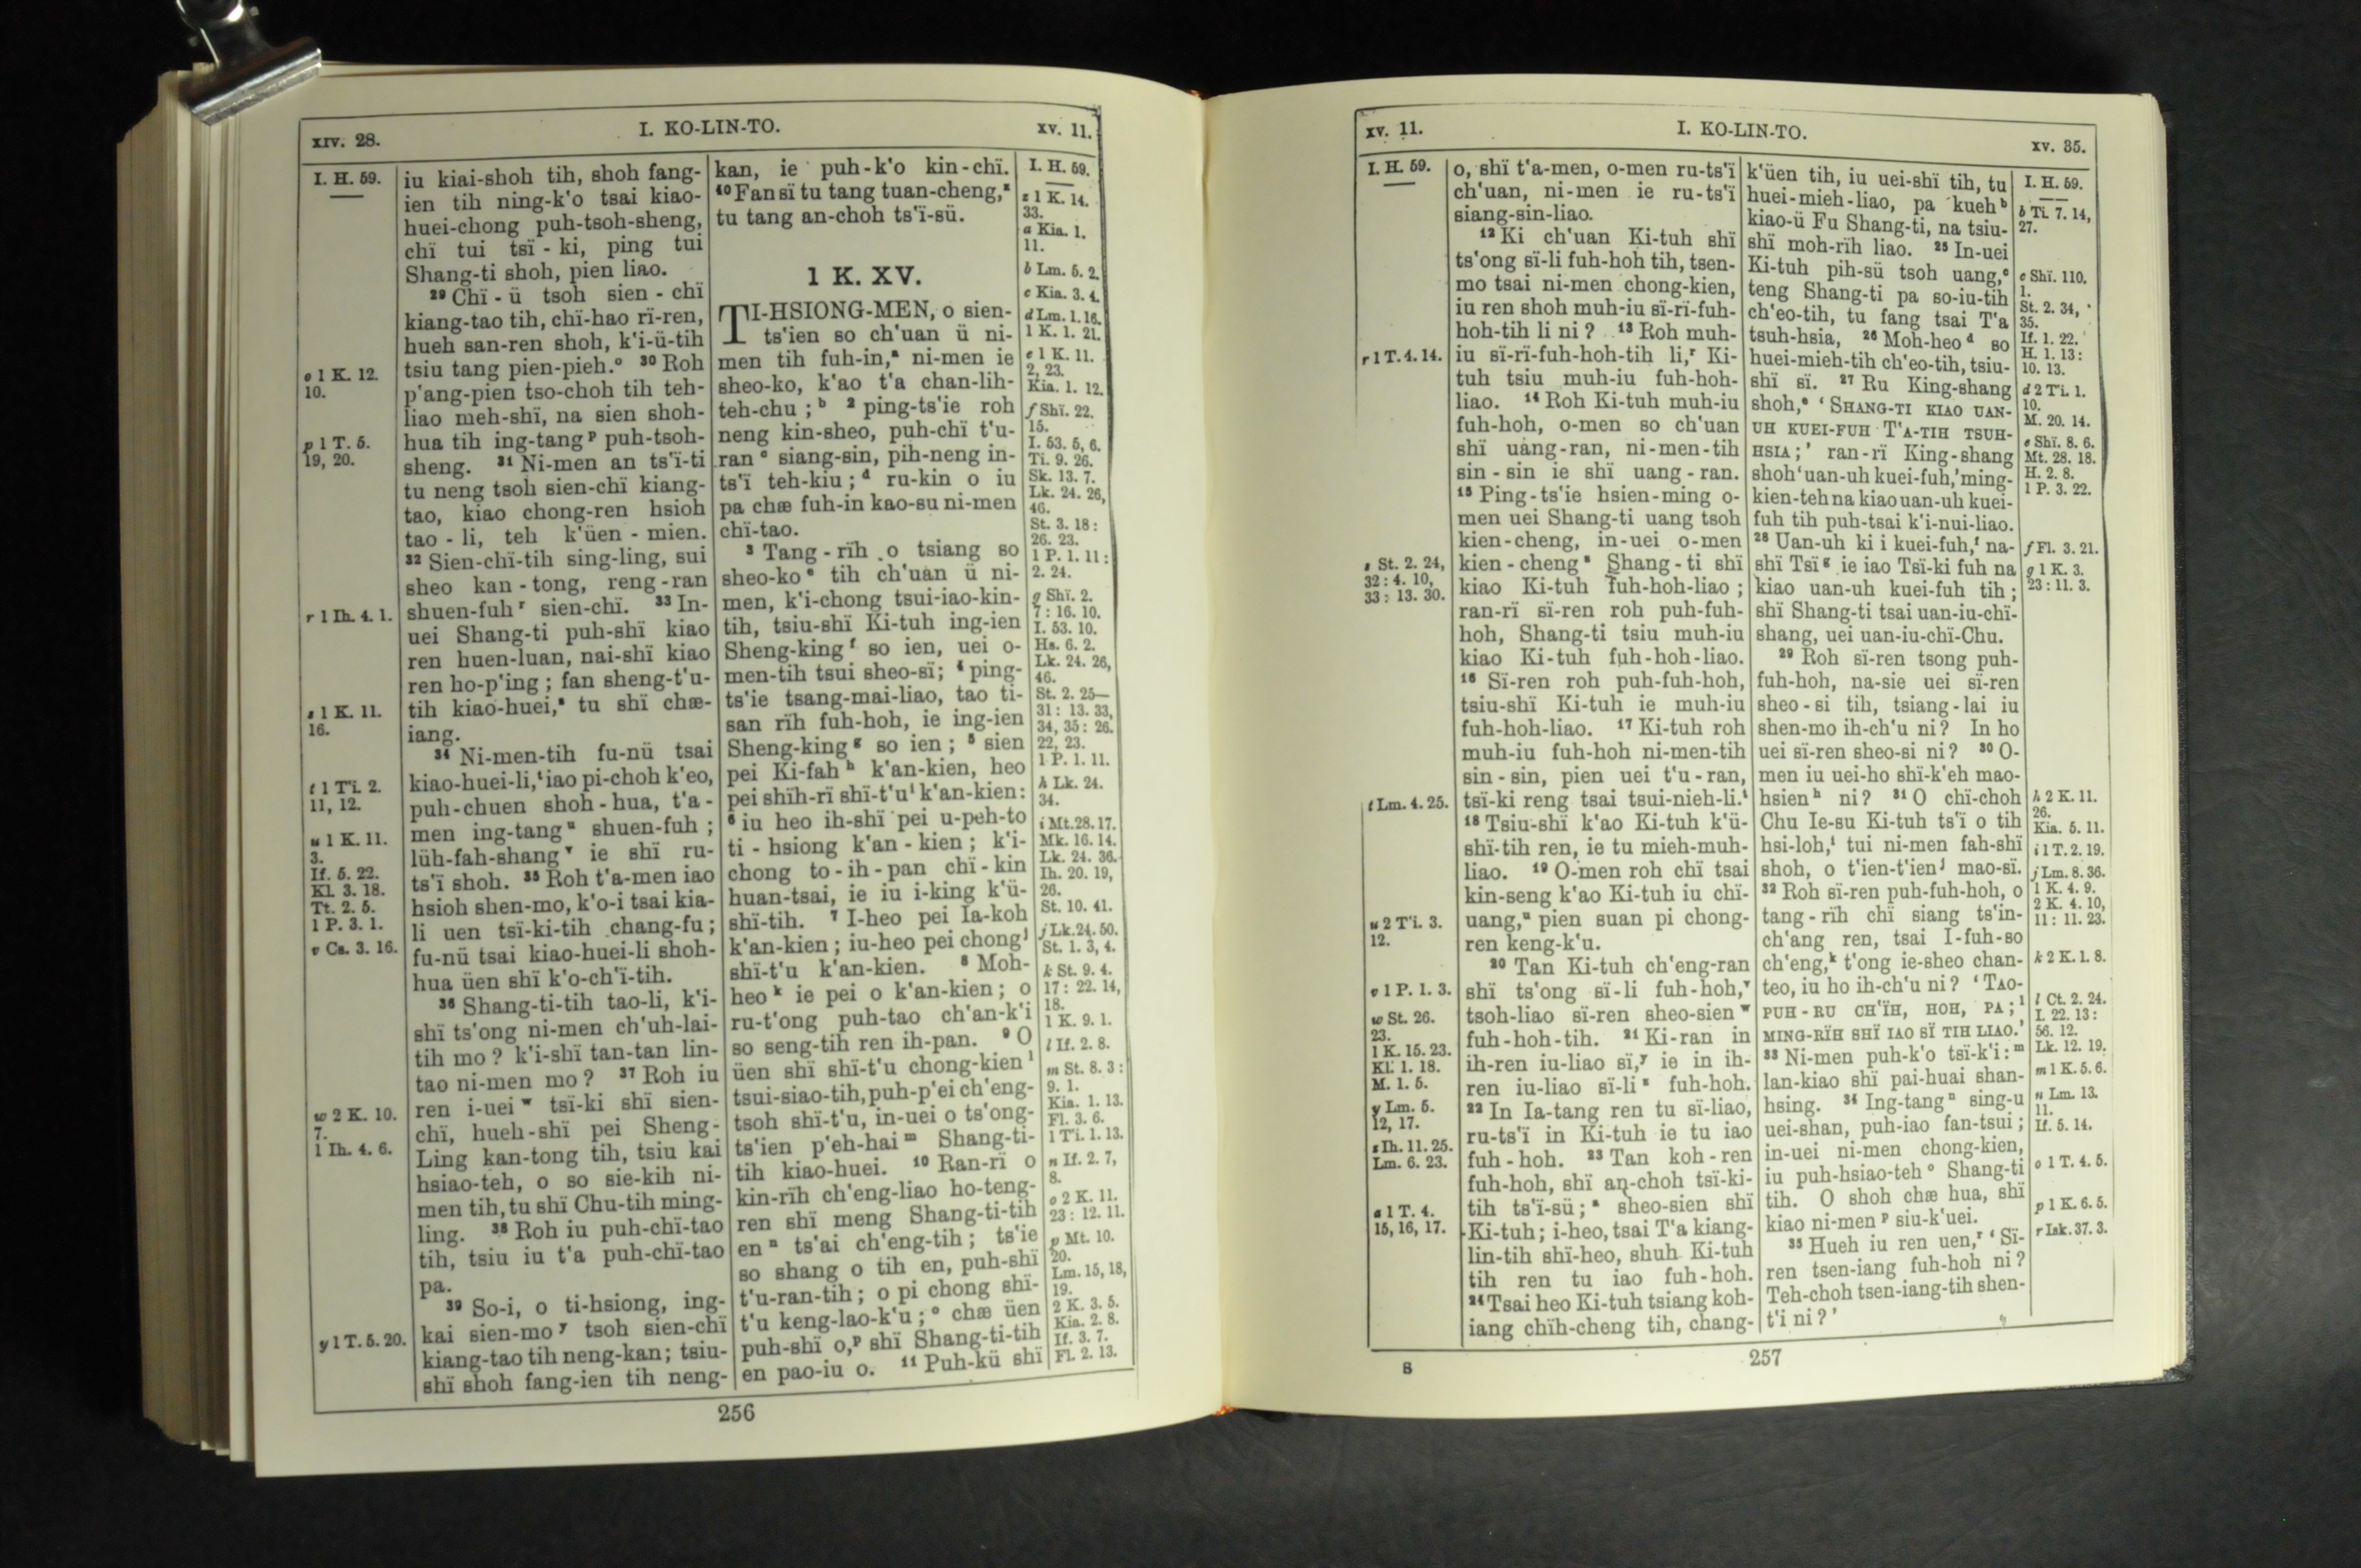 xiv. 28.
I. KO-LIN-TO.
xv. 11.
I. H. 59.
o 1 K. 12.
10.
p 1 T. 5.
19, 20.
r 1 Ih. 4. 1.
s 1 K. 11.
16.
t 1 Ti. 2.
11, 12.
u 1 K. 11.
3.
If. 5. 22.
Kl. 3. 18.
Tt. 2. 5.
1 P. 3. 1.
v Cs. 3. 16.
w 2 K. 10.
7.
1 Ih. 4. 6.
y 1 T. 5. 20.
iu kiai-shoh tih, shoh fang-
ien tih ning-k'o tsai kiao-
huei-chong puh-tsoh-sheng,
chï tui tsï - ki, ping tui
Shang-ti shoh, pien liao.
29 Chï - ü tsoh sien - chï
kiang-tao tih, chï-hao rï-ren,
hueh san-ren shoh, k'i-ü-tih
tsiu tang pien-pieh.o 30 Roh
p'ang-pien tso-choh tih teh-
liao meh-shï, na sien shoh-
hua tih ing-tang p puh-tsoh-
sheng. 31 Ni-men an ts'ï-ti
tu neng tsoh sien-chï kiang-
tao, kiao chong-ren hsioh
tao - li, teh k'üen - mien.
32 Sien-chï-tih sing-ling, sui
sheo kan - tong, reng - ran
shuen-fuh r sien-chï. 33 In-
uei Shang-ti puh-shï kiao
ren huen-luan, nai-shï kiao
ren ho-p'ing ; fan sheng-t'u-
tih kiao-huei,s tu shï chæ-
iang.
34 Ni-men-tih fu-nü tsai
kiao-huei-li,t iao pi-choh k'eo,
puh-chuen shoh - hua, t'a -
men ing-tang u shuen-fuh ;
lüh-fah-shang v ie shï ru-
ts'ï shoh. 35 Roh t'a-men iao
hsioh shen-mo, k'o-i tsai kia-
li uen tsï-ki-tih chang-fu ;
fu-nü tsai kiao-huei-li shoh-
hua üen shï k'o-ch'ï-tih.
36 Shang-ti-tih tao-li, k'i-
shï ts'ong ni-men ch'uh-lai-
tih mo ? k'i-shï tan-tan lin-
tao ni-men mo ? 37 Roh iu
ren i-uei w tsï-ki shï sien-
chï, hueh-shï pei Sheng-
Ling kan-tong tih, tsiu kai
hsiao-teh, o so sie-kih ni-
men tih, tu shï Chu-tih ming-
ling. 38 Roh iu puh-chï-tao
tih, tsiu iu t'a puh-chï-tao
pa.
39 So-i, o ti-hsiong, ing-
kai sien-mo y tsoh sien-chï
kiang-tao tih neng-kan ; tsiu-
shï shoh fang-ien tih neng-
kan, ie puh-k'o kin-chï.
40 Fan sï tu tang tuan-cheng,z
tu tang an-choh ts'ï-sü.
1 K. XV.
TI-HSIONG-MEN, o sien-
ts'ien so ch'uan ü ni-
men tih fuh-in,a ni-men ie
sheo-ko, k'ao t'a chan-lih-
teh-chu ; b 2 ping-ts'ie roh
neng kin-sheo, puh-chï t'u-
ran c siang-sin, pih-neng in-
ts'ï teh-kiu ; d ru-kin o iu
pa chæ fuh-in kao-su ni-men
chï-tao.
3 Tang - rïh o tsiang so
sheo-ko e tih ch'uan ü ni-
men, k'i-chong tsui-iao-kin-
tih, tsiu-shï Ki-tuh ing-ien
Sheng-king f so ien, uei o-
men-tih tsui sheo-sï ; 4 ping-
ts'ie tsang-mai-liao, tao ti-
san rïh fuh-hoh, ie ing-ien
Sheng-king g so ien ; 5 sien
pei Ki-fah h k'an-kien, heo
pei shïh-rï shï-t'u i k'an-kien :
6 iu heo ih-shï pei u-peh-to
ti - hsiong k'an - kien ; k'i-
chong to - ih - pan chï - kin
huan-tsai, ie iu i-king k'ü-
shï-tih. 7 I-heo pei Ia-koh
k'an-kien ; iu-heo pei chong j
shï-t'u k'an-kien. 8 Moh-
heo k ie pei o k'an-kien ; o
ru-t'ong puh-tao ch'an-k'i
so seng-tih ren ih-pan. 9 O
üen shï shï-t'u chong-kien l
tsui-siao-tih, puh-p'ei ch'eng-
tsoh shï-t'u, in-uei o ts'ong-
ts'ien p'eh-hai m Shang-ti-
tih kiao-huei. 10 Ran-rï o
kin-rïh ch'eng-liao ho-teng-
ren shï meng Shang-ti-tih
en n ts'ai ch'eng-tih ; ts'ie
so shang o tih en, puh-shï
t'u-ran-tih ; o pi chong shï-
t'u keng-lao-k'u ; o chæ üen
puh-shï o,p shï Shang-ti-tih
en pao-iu o. 11 Puh-kü shï
I. H. 59.
z 1 K. 14.
33.
a Kia. 1.
11.
b Lm. 5. 2.
c Kia. 3. 4.
d Lm. 1. 16.
1 K. 1. 21.
e 1 K. 11.
2, 23.
Kia. 1. 12.
f Shï. 22.
15.
I. 53. 5, 6.
Ti. 9. 26.
Sk. 13. 7.
Lk. 24. 26,
46.
St. 3. 18 :
26. 23.
1 P. 1. 11 :
2. 24.
g Shï. 2.
7 : 16. 10.
I. 53. 10.
Hs. 6. 2.
Lk. 24. 26,
46.
St. 2. 25—
31 : 13. 33,
34, 35 : 26.
22, 23.
1 P. 1. 11.
h Lk. 24.
34.
i Mt. 28. 17.
Mk. 16. 14.
Lk. 24. 36.
Ih. 20. 19,
26.
St. 10. 41.
j Lk. 24. 50.
St. 1. 3, 4.
k St. 9. 4.
17 : 22. 14,
18.
1 K. 9. 1.
l If. 2. 8.
m St. 8. 3 :
9. 1.
Kia. 1. 13.
Fl. 3. 6.
1 Ti. 1. 13.
n If. 2. 7,
8.
o 2 K. 11.
23 : 12. 11.
p Mt. 10.
20.
Lm. 15, 18,
19.
2 K. 3. 5.
Kia. 2. 8.
If. 3. 7.
Fl. 2. 13.
256
xv. 11.
I. KO-LIN-TO.
xv. 35.
I. H. 59.
r 1 T. 4. 14.
s St. 2. 24,
32 : 4. 10,
33 : 13. 30.
t Lm. 4. 25.
u 2 Ti. 3.
12.
v 1 P. 1. 3.
w St. 26.
23.
1 K. 15. 23.
Kl. 1. 18.
M. 1. 5.
y Lm. 5.
12, 17.
z Ih. 11. 25.
Lm. 6. 23.
a 1 T. 4.
15, 16, 17.
o, shï t'a-men, o-men ru-ts'ï
ch'uan, ni-men ie ru-ts'ï
siang-sin-liao.
12 Ki ch'uan Ki-tuh shï
ts'ong sï-li fuh-hoh tih, tsen-
mo tsai ni-men chong-kien,
iu ren shoh muh-iu sï-rï-fuh-
hoh-tih li ni ? 13 Roh muh-
iu sï-rï-fuh-hoh-tih li,r Ki-
tuh tsiu muh-iu fuh-hoh-
liao. 14 Roh Ki-tuh muh-iu
fuh-hoh, o-men so ch'uan
shï uang-ran, ni-men-tih
sin - sin ie shï uang - ran.
15 Ping-ts'ie hsien-ming o-
men uei Shang-ti uang tsoh
kien-cheng, in-uei o-men
kien - cheng s Shang - ti shï
kiao Ki-tuh fuh-hoh-liao ;
ran-rï sï-ren roh puh-fuh-
hoh, Shang-ti tsiu muh-iu
kiao Ki-tuh fuh-hoh-liao.
16 Sï-ren roh puh-fuh-hoh,
tsiu-shï Ki-tuh ie muh-iu
fuh-hoh-liao. 17 Ki-tuh roh
muh-iu fuh-hoh ni-men-tih
sin - sin, pien uei t'u - ran,
tsï-ki reng tsai tsui-nieh-li.t
18 Tsiu-shï k'ao Ki-tuh k'ü-
shï-tih ren, ie tu mieh-muh-
liao. 19 O-men roh chï tsai
kin-seng k'ao Ki-tuh iu chï-
uang,u pien suan pi chong-
ren keng-k'u.
20 Tan Ki-tuh ch'eng-ran
shï ts'ong sï-li fuh-hoh,v
tsoh-liao sï-ren sheo-sien w
fuh-hoh-tih. 21 Ki-ran in
ih-ren iu-liao sï,y ie in ih-
ren iu-liao sï-li z fuh-hoh.
22 In Ia-tang ren tu sï-liao,
ru-ts'ï in Ki-tuh ie tu iao
fuh - hoh. 23 Tan koh - ren
fuh-hoh, shï an-choh tsï-ki-
tih ts'ï-sü ; a sheo-sien shï
Ki-tuh ; i-heo, tsai T'a kiang-
lin-tih shï-heo, shuh Ki-tuh
tih ren tu iao fuh-hoh.
24 Tsai heo Ki-tuh tsiang koh-
iang chïh-cheng tih, chang-
k'üen tih, iu uei-shï tih, tu
huei-mieh-liao, pa kueh b
kiao-ü Fu Shang-ti, na tsiu-
shï moh-rïh liao. 25 In-uei
Ki-tuh pih-sü tsoh uang,c
teng Shang-ti pa so-iu-tih
ch'eo-tih, tu fang tsai T'a
tsuh-hsia, 26 Moh-heo d so
huei-mieh-tih ch'eo-tih, tsiu-
shï sï. 27 Ru King-shang
shoh,e ' SHANG-TI KIAO UAN-
UH KUEI-FUH T'A-TIH TSUH-
HSIA ; ' ran-rï King-shang
shoh ' uan-uh kuei-fuh,' ming-
kien-teh na kiao uan-uh kuei-
fuh tih puh-tsai k'i-nui-liao.
28 Uan-uh ki i kuei-fuh,f na-
shï Tsï g ie iao Tsï-ki fuh na
kiao uan-uh kuei-fuh tih ;
shï Shang-ti tsai uan-iu-chï-
shang, uei uan-iu-chï-Chu.
29 Roh sï-ren tsong puh-
fuh-hoh, na-sie uei sï-ren
sheo - si tih, tsiang - lai iu
shen-mo ih-ch'u ni ? In ho
uei sï-ren sheo-si ni ? 30 O-
men iu uei-ho shï-k'eh mao-
hsien h ni ? 31 O chï-choh
Chu Ie-su Ki-tuh ts'ï o tih
hsi-loh,i tui ni-men fah-shï
shoh, o t'ien-t'ien j mao-sï.
32 Roh sï-ren puh-fuh-hoh, o
tang - rïh chï siang ts'in-
ch'ang ren, tsai I-fuh-so
ch'eng,k t'ong ie-sheo chan-
teo, iu ho ih-ch'u ni ? ' TAO-
PUH - RU CH'ÏH, HOH, PA ; l
MING-RÏH SHÏ IAO SÏ TIH LIAO.'
33 Ni-men puh-k'o tsï-k'i : m
lan-kiao shï pai-huai shan-
hsing. 34 Ing-tang n sing-u
uei-shan, puh-iao fan-tsui ;
in-uei ni-men chong-kien,
iu puh-hsiao-teh o Shang-ti
tih. O shoh chæ hua, shï
kiao ni-men p siu-k'uei.
35 Hueh iu ren uen,r ' Sï-
ren tsen-iang fuh-hoh ni ?
Teh-choh tsen-iang-tih shen-
t'i ni ? '
I. H. 59.
b Ti. 7. 14,
27.
c Shï. 110.
1.
St. 2. 34,
35.
If. 1. 22.
H. 1. 13 :
10. 13.
d 2 Ti. 1.
10.
M. 20. 14.
e Shï. 8. 6.
Mt. 28. 18.
H. 2. 8.
1 P. 3. 22.
f Fl. 3. 21.
g 1 K. 3.
23 : 11. 3.
h 2 K. 11.
26.
Kia. 5. 11.
i 1 T. 2. 19.
j Lm. 8. 36.
1 K. 4. 9.
2 K. 4. 10,
11 : 11. 23.
k 2 K. 1. 8.
l Ct. 2. 24.
I. 22. 13 :
56. 12.
Lk. 12. 19.
m 1 K. 5. 6.
n Lm. 13.
11.
If. 5. 14.
o 1 T. 4. 5.
p 1 K. 6. 5.
r Isk. 37. 3.
S
257